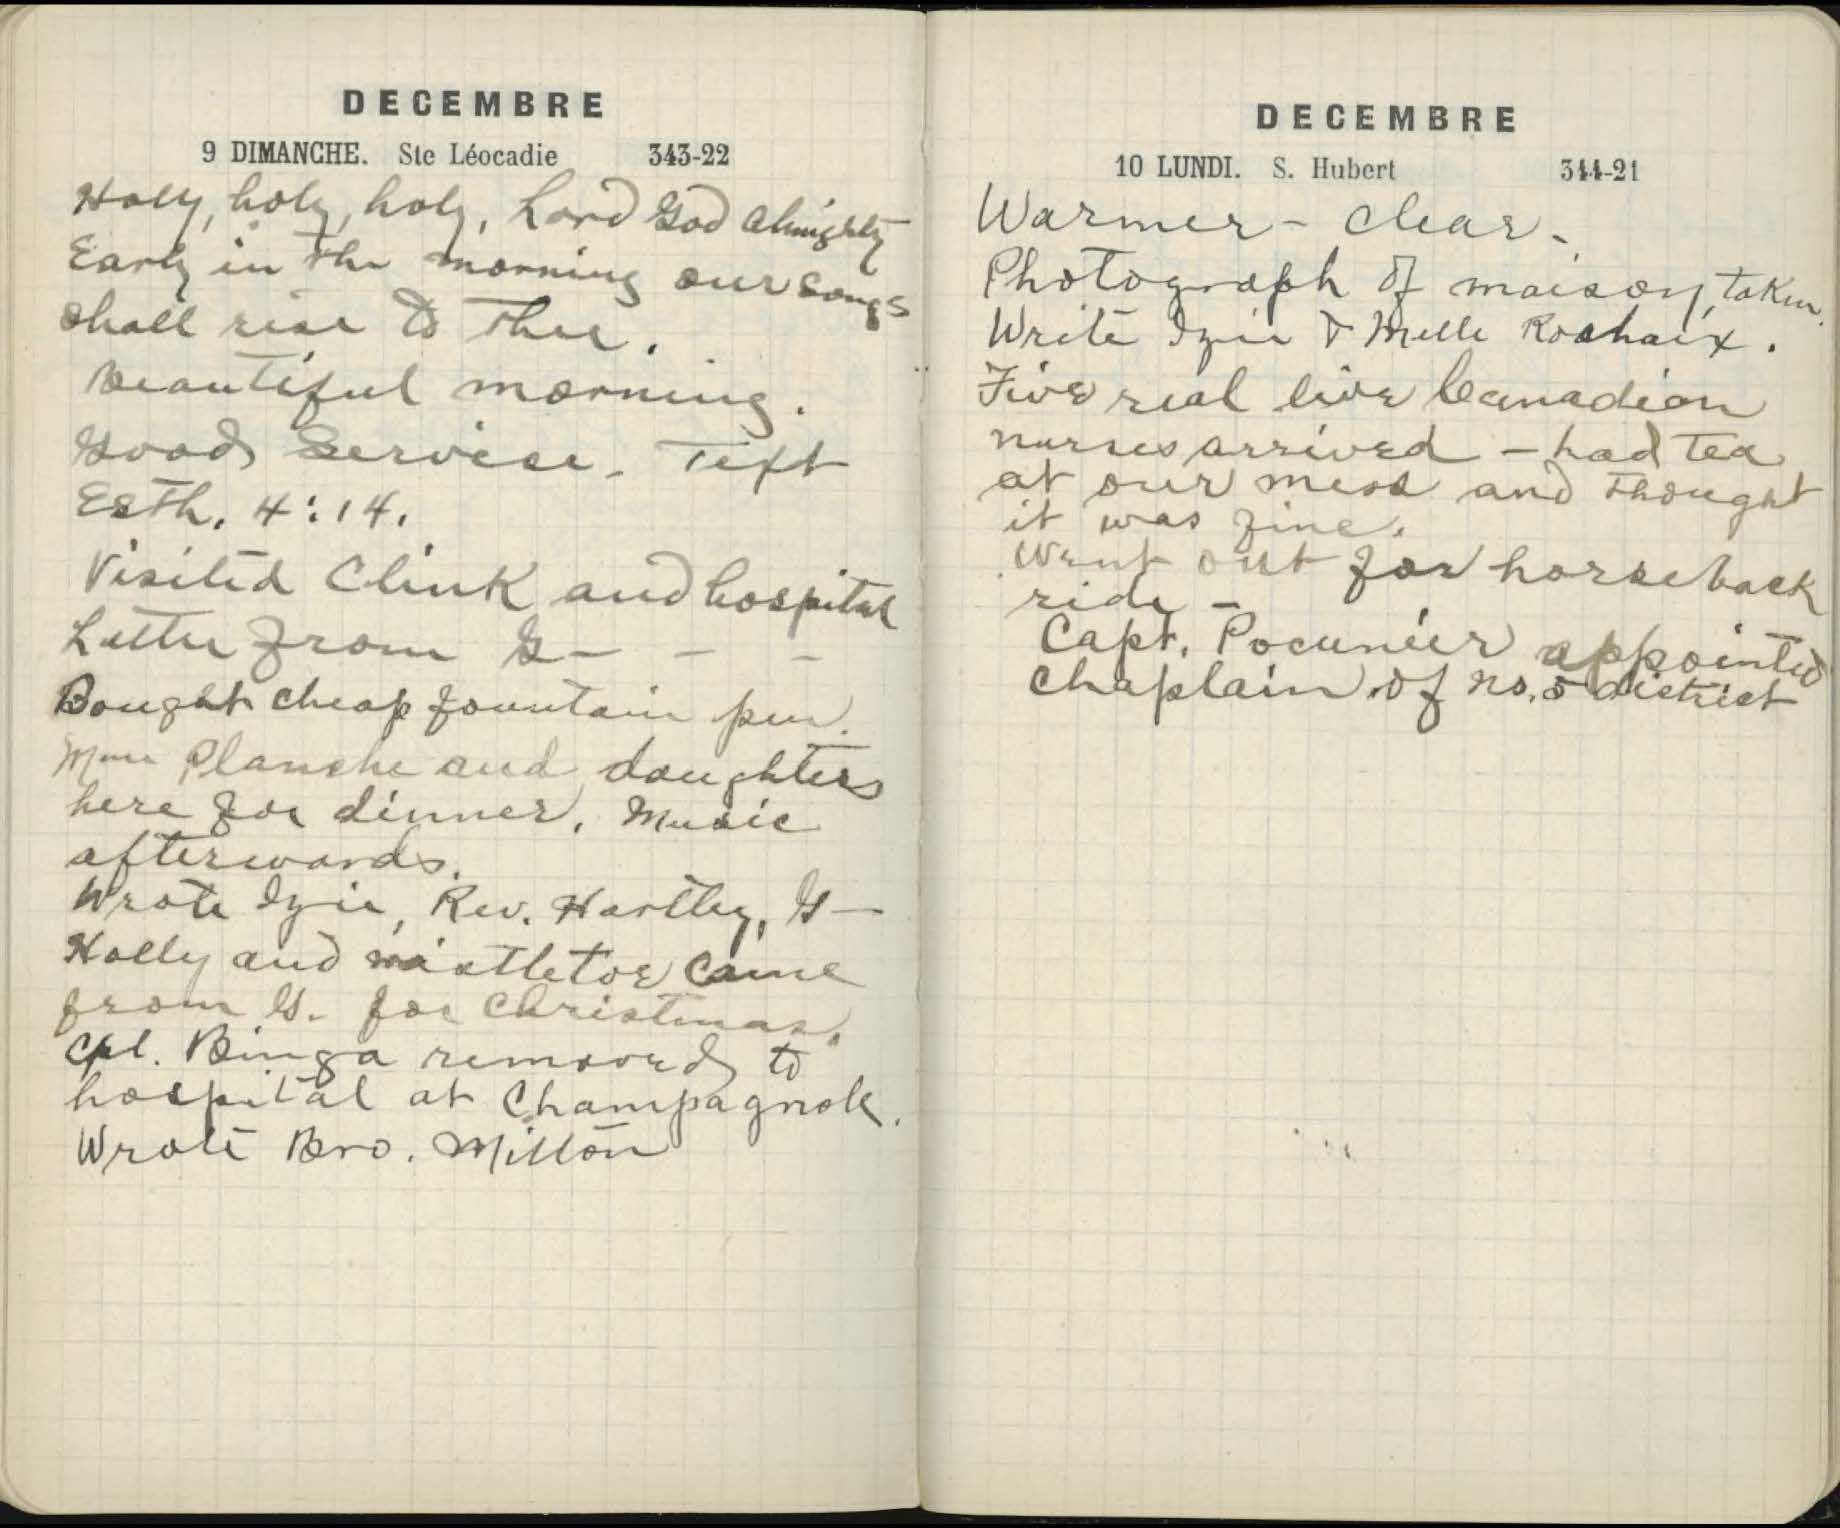 DECEMBRE
9 DIMANCHE. Ste Léocadie 343-22
Holy, holy, holy, Lord God Almighty
Early in the morning our songs
shall rise to Thee.
Beautiful morning.
Good Service. Text
Esth. 4:14.
Visited Clink and hospital
Letter from G - - -
Bought cheap fountain pen.
Mme Planche and daughters
here for dinner. Music
afterwards.
Wrote Izie, Rev. Hartley, G -
Holly and mistletoe came
from G. for Christmas.
Cpl. Binga removed to
hospital at Champagnole.
Wrote Bro. Milton
DECEMBRE
10 LUNDI. S. Hubert 344-21
Warmer - Clear -
Photograph of maison, taken.
Write Izie & Melle
Five real live Canadian
nurses arrived - had tea
at our mess and thought
it was fine.
Went out for horseback
ride -
Capt. appointed
Chaplain of no. 5 district